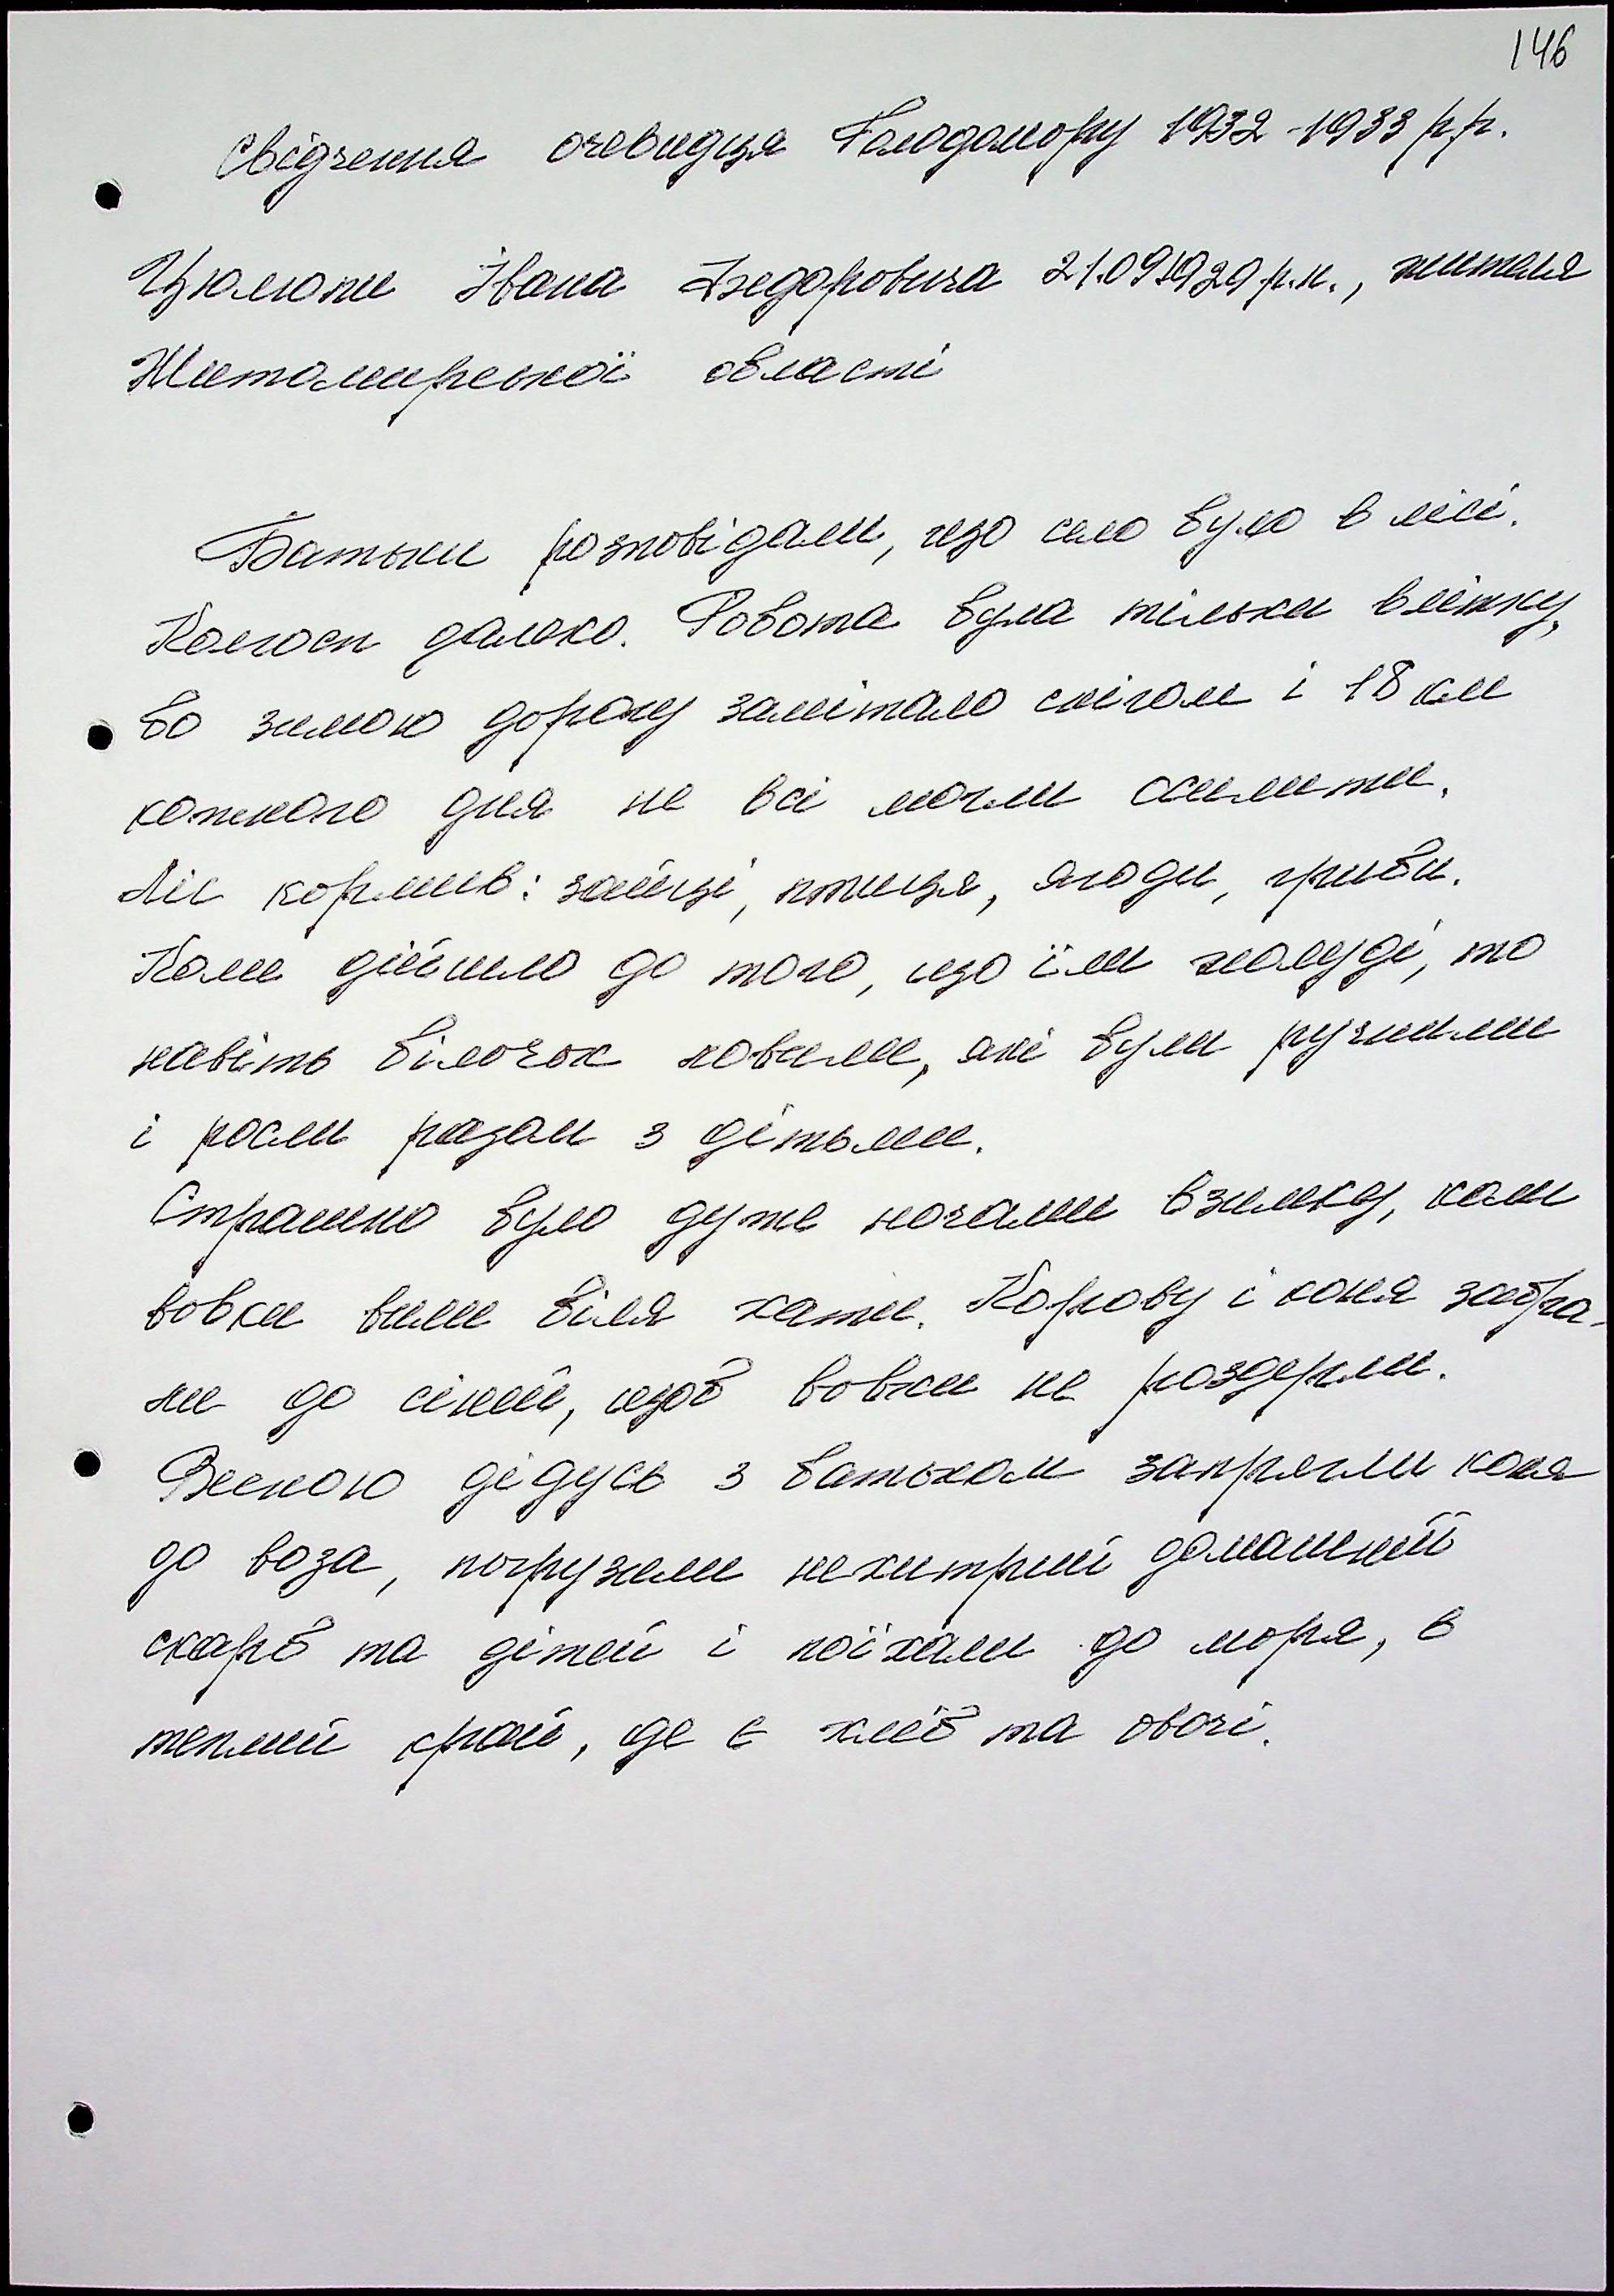 146
Свідчення очевидця Голодомору 1932-1933 р.р.
Цюлюпи Івана Федоровича 21.09.1929 р.н., жителя
Житомирської області
Батьки розповідали, що село було в лісі.
Колгосп далеко. Робота була тільки влітку,
бо зимою дорогу замітало снігом і 18 км
кожного дня не всі могли осилити.
Ліс кормив: зайці, птиця, ягоди, гриби.
Коли дійшло до того, що їли жолуді, то
навіть білочок ловили, які були ручними
і росли разом з дітьми.
Страшно було дуже ночами взимку, коли
вовки вили біля хати. Корову і коня забра-
ли до сіней, щоб вовки не роздерли.
Весною дідусь з батьком запрягли коня
до воза, погрузили нехитрий домашній
скарб та дітей і поїхали до моря, в
теплий край, де є хліб та овочі.